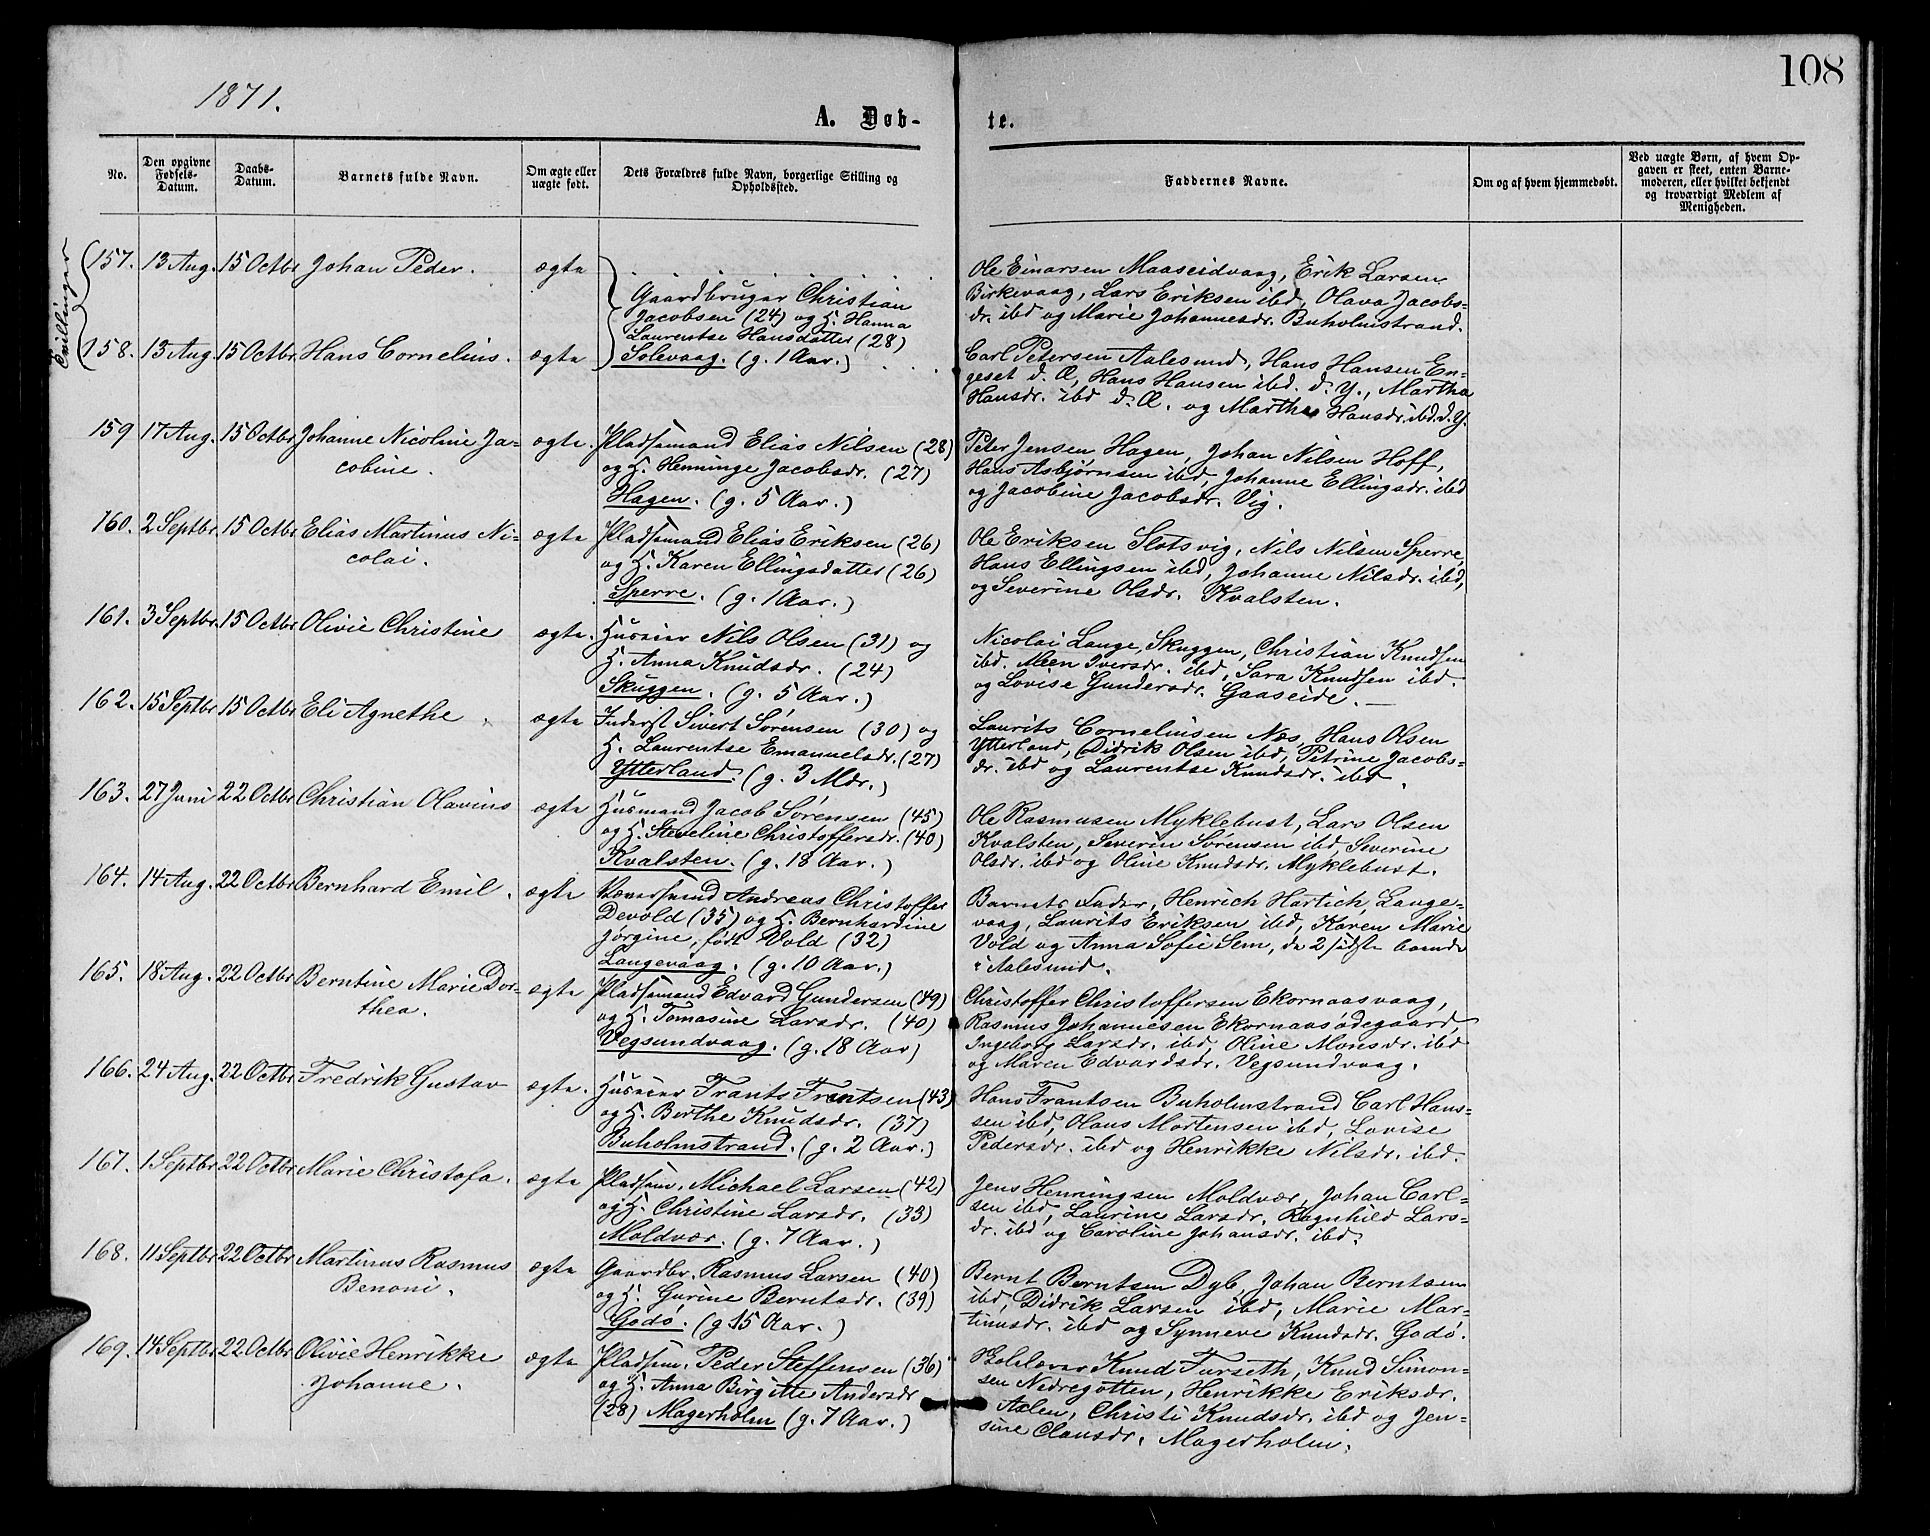 108
1871.
A. Døb-
te.
No.
Den opgivne Fødsels-Datum.
Daabs-Datum.
Barnets fulde Navn.
Om ægte eller uægte født.
Dets Forældres fulde Navn, borgerlige Stilling og Opholdssted.
Faddernes Navne.
Om og af hvem hjemmedøbt.
Ved uægte Børn, af hvem Op-
gaven er skeet, enten Barne-
moderen, eller hvilket bekjendt
og troværdigt Medlem af
Menigheden.
Tvillinger
157. 13 Aug. 15 Octbr Johan Peder. ægte
Gaardbruger Christian
Jacobsen (24) og H. Hanna
Laurentse Hansdatter (28)
Solevaag. (g. 1 Aar.)
Ole Einarsen Maaseidvaag, Erik Larsen
Birkevaag, Lars Eriksen ibd, Olava Jacobs-
dr. ibd og Marie Johannesdr. Buholmstrand.
158. 13 Aug. 15 Octbr. Hans Cornelius. ægte
Carl Petersen Aalesund, Hans Hansen En-
geset d. Æ, Hans Hansen ibd. d. Y., Martha
Hansdr. ibd d. Æ. og Martha Hansdr. ibd. d. Y.
159 17 Aug. 15 Octbr Johanne Nicoline Ja-
cobine. ægte.
Pladsemand Elias Nilsen (28)
og H. Henninge Jacobsdr. (27)
Hagen. (g. 5 Aar.)
Peter Jensen Hagen, Johan Nilsen Hoff,
Hans Asbjørnsen ibd, Johanne Ellingsdr. ibd
og Jacobine Jacobsdr. Vig.
160. 2 Septbr. 15 Octbr Elias Martinus Ni-
colai. ægte
Pladsemand Elias Eriksen (26)
og H. Karen Ellingsdatter (26)
Sperre. (g. 1 Aar.)
Ole Eriksen Slotsvig, Nils Nilsen Sperre,
Hans Ellingsen ibd, Johanne Nilsdr. ibd,
og Severine Olsdr. Kvalsten.
161. 3 Septbr. 15 Octbr Olivie Christine ægte.
Huseier Nils Olsen (31) og
H. Anna Knudsdr. (24)
Skuggen. (g. 5 Aar.)
Nicolai Lange, Skuggen, Christian Knudsen
ibd. Meen Iversdr. ibd, Sara Knudsen ibd.
og Lovise Gundersdr. Gaaseide.
162. 15 Septbr 15 Octbr Eli Agnethe ægte
Inderst Sivert Sørensen (30) og
H. Laurentse Emanuelsdr. (27)
Ytterland (g. 3 Mdr.)
Laurits Corneliusen Næs, Hans Olsen
Ytterland, Didrik Olsen ibd, Petrine Jacobs-
dr. ibd og Laurentse Knudsdr. ibd.
163. 27 Juni 22 Octbr Christian Olavius ægte
Husmand Jacob Sørensen (45)
og H. Steveline Christoffersdr. (40)
Kvalsten. (g. 18 Aar.)
Ole Rasmusen Myklebust, Lars Olsen
Kvalsten, Severin Sørensen ibd, Severine
Olsdr. ibd og Oline Knudsdr. Myklebust.
164. 14 Aug. 22 Octbr Bernhard Emil. ægte
Andreas Christoffer
Devold (35) og H. Bernhardine
Jørgine, født Vold (32)
Langevaag. (g. 10 Aar.)
Barnets Fader, Henrich Hartich, Lange-
vaag, Laurits Eriksen ibd, Karen Marie
Vold og Anna Sofie Sem, de 2 sidste boende
i Aalesund.
165. 18 Aug. 22 Octbr Berntine Marie Dor-
thea. ægte
Pladsemand Edvard Gundersen (49)
og H. Tomasine Larsdr. (40)
Vegsundvaag. (g. 18 Aar)
Christoffer Christoffersen Ekornaasvaag,
Rasmus Johannesen Ekornaasødegaard,
Ingeborg Larsdr. ibd, Oline Monsdr. ibd
og Maren Edvardsdr. Vegsundvaag.
166. 24 Aug. 22 Octbr Fredrik Gustav ægte.
Huseier Frants Frantsen (43)
og H. Berthe Knudsdr. (37)
Buholmstrand. (g. 2 Aar.)
Hans Frantsen Buholmstrand Carl Hans-
sen ibd, Hans Mortensen ibd, Lovise
Pedersdr. ibd og Henrikke Nilsdr. ibd.
167. 1 Septbr 22 Octbr Marie Christofa. ægte
Pladsem. Michael Larsen (42)
og H. Christine Larsdr. (33)
Moldvær. (g. 7 Aar.)
Jens Henningsen Moldvær, Johan Carl-
sen ibd, Laurine Larsdr. Ragnhild Lars-
dr. ibd og Caroline Johansdr. ibd.
168. 11 Septbr 22 Octbr Martinus Rasmus
Benoni. ægte
Gaardbr. Rasmus Larsen (40)
og H. Gurine Berntsdr. (39)
Godø. (g 15 Aar.)
Bernt Berntsen Dyb, Johan Berntsen
ibd, Didrik Larsen ibd, Marie Mar-
tinusdr. ibd og Synneve Knudsdr. Godø.
169. 14 Septbr 22 Octbr Olivie Henrikke
Johanne. ægte
Pladsem. Peder Steffensen (36)
og H. Anna Birgitte Andersdr
(28) Magerholm (g. 7 Aar.)
Skolelærer Knud Furseth, Knud Simon-
sen Nedregotten, Henrikke Eriksdr.
Aslen, Christi Knudsdr. ibd og Jen-
sine Clausdr. Magerholm.